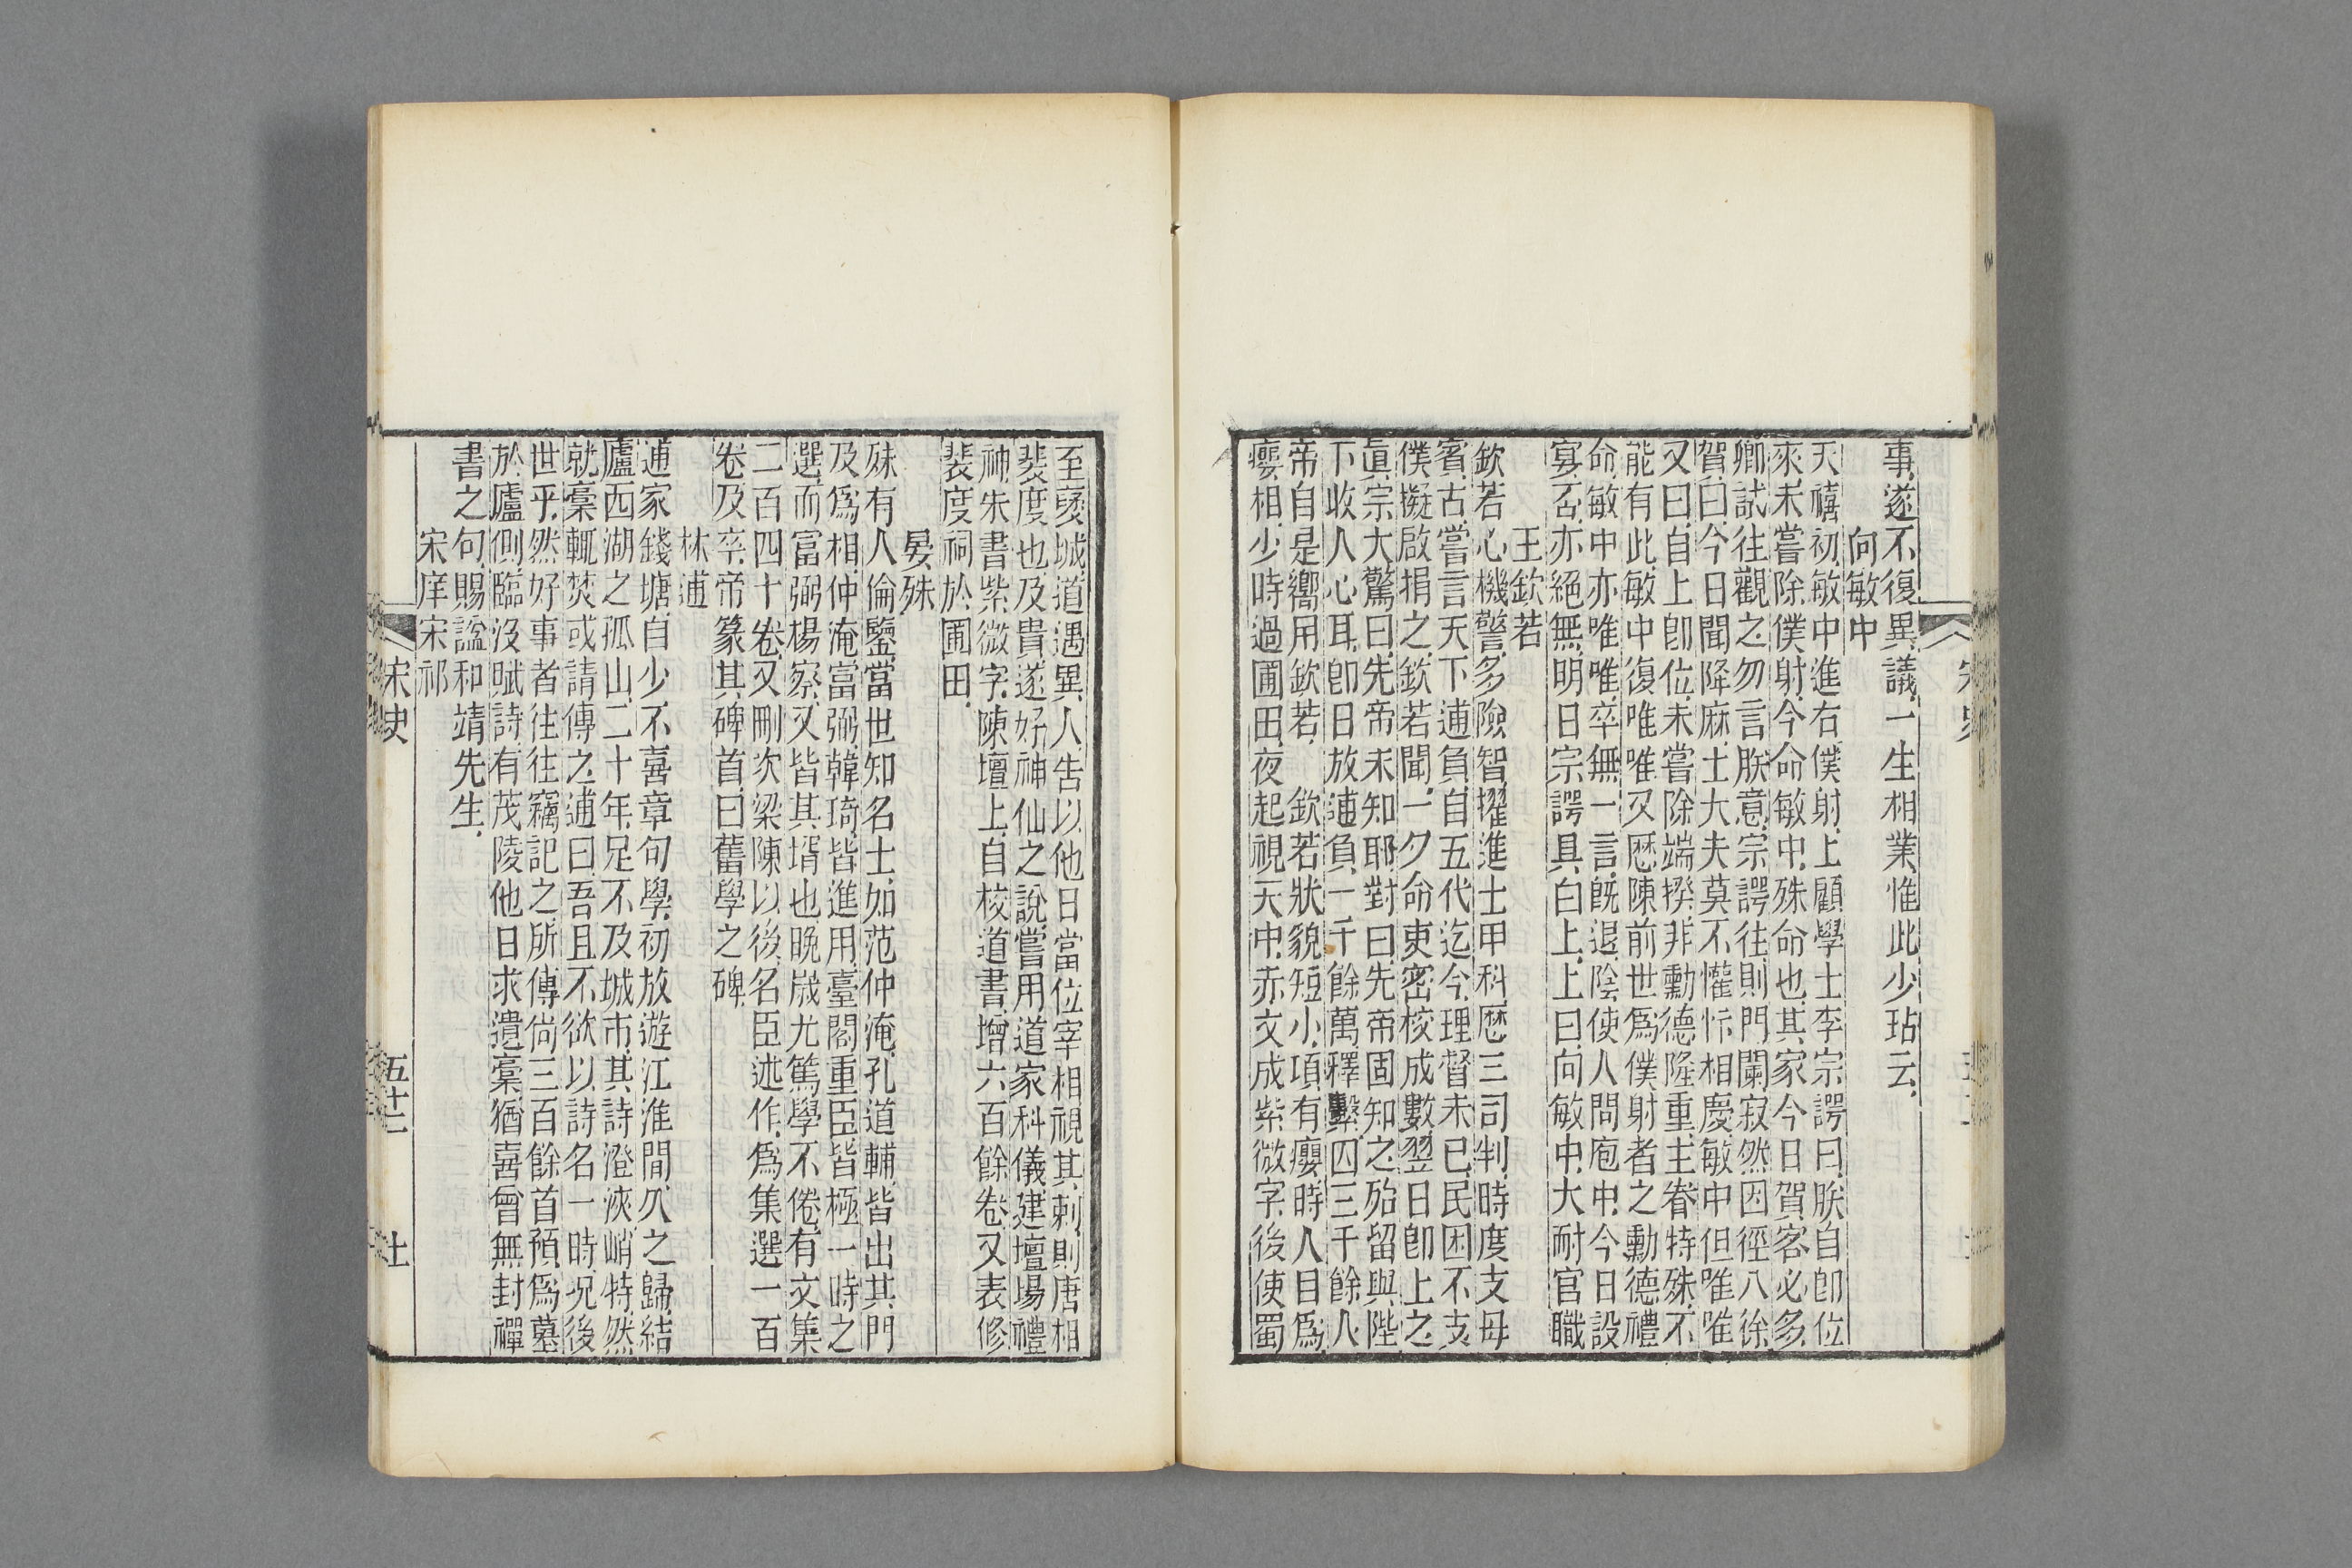 事、遂不復異議、一生相業、惟此少玷云、
向敏中
天禧初、敏中進右僕射、上顧學士李宗諤曰、朕自卽位
來、未嘗除僕射、今命敏中、殊命也、其家今日賀客必多、
卿試往觀之、勿言朕意、宗諤往、則門闌寂然、因徑入徐
賀曰、今日聞降麻、士大夫莫不懽忭相慶、敏中但唯唯、
又曰、自上卽位、未嘗除端揆、非勳德隆重、主眷特殊、不
能有此、敏中復唯唯、又歷陳前世爲僕射者之勳德禮
命、敏中亦唯唯、卒無一言、旣退、陰使人問庖中、今日設
宴否、亦絕無、明日宗諤具白上、上曰、向敏中大耐官職
王欽若
欽若心機警、多險智、擢進士甲科、歷三司判、時度支毋
賓古嘗言天下逋負、自五代迄今、理督未已、民困不支
僕擬啟捐之、欽若聞、一夕命吏密校成數、翌日卽上之、
眞宗大驚曰、先帝未知耶、對曰、先帝固知之、殆留與陛
下收人心耳、卽日放逋負一千餘萬、釋繫囚三千餘人
帝自是嚮用欽若、　欽若狀貌短小、項有癭、時人目爲
癭相、少時過圃田、夜起視天中、赤文成紫微字、後使蜀
宋史
至褒城、道遇異人、告以他日當位宰相、視其刺、則唐相
裴度也、及貴、遂好神仙之說、嘗用道家科儀、建壇場禮
神、朱書紫微字、陳壇上、自校道書、增六百餘卷、又表修
裴度祠於圃田、
晏殊
殊有人倫鑒、當世知名士、如范仲淹、孔道輔、皆出其門
及爲相、仲淹當弼、韓琦、皆進用、臺閣重臣、皆極一時之
選、而富弼楊察、又皆其壻也、晩歲尤篤學不倦、有文集
二百四十卷、又刪次梁陳以後名臣述作、爲集選一百
卷、及卒、帝篆其碑首、曰舊學之碑、
林逋
逋家錢塘、自少不喜章句學、初放遊江淮間、久之歸、結
廬西湖之孤山、二十年足不及城市、其詩澄浹峭特、然
就稾輒焚、或請傳之、逋曰、吾且不欲以詩名一時、况後
世乎、然好事者往往竊記之、所傳尙三百餘首、預爲墓
於廬側、臨沒賦詩、有茂陵他日求遺稾、猶喜曾無封禪
書之句、賜諡和靖先生、
宋庠宋祁
宋史
五十二